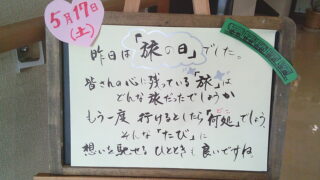 5月17日
(土)
昨日は「旅の日」でした。
皆さんの心に残っている「旅」は
どんな旅だったでしょうか
もう一度 行けるとしたら「何処」でしょう。
どこ
そんな「たび」に
想いを馳せる ひとときも 良いですね。